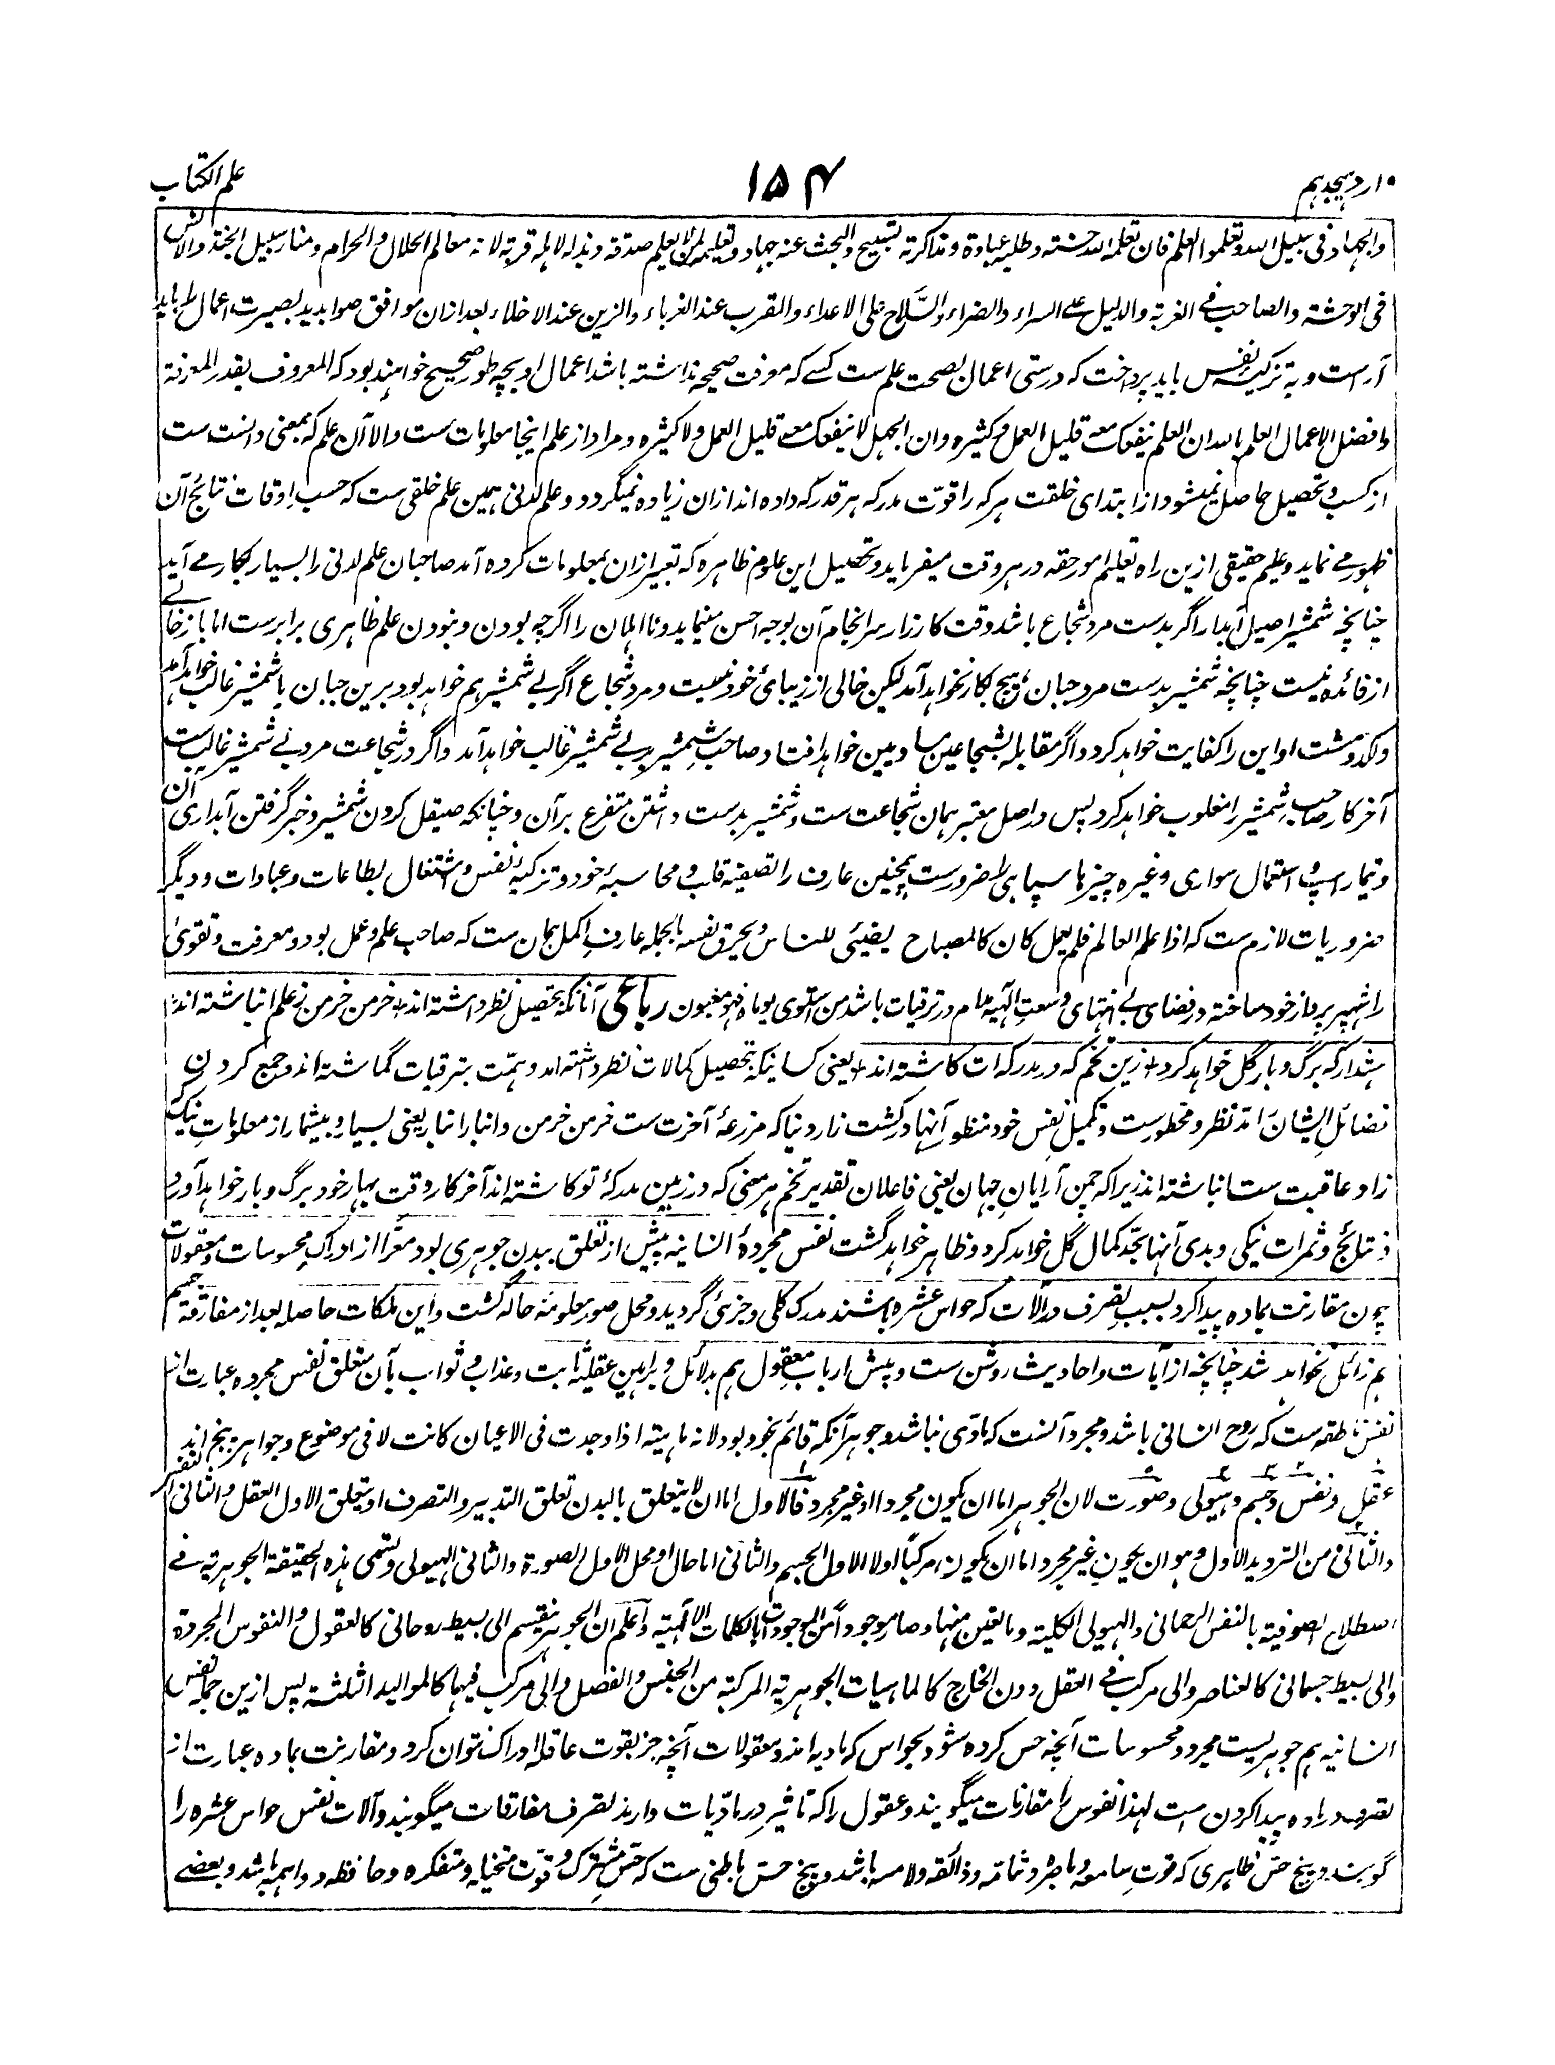 وارد هیجدهم ۱۵۴ علم الکتاب
والجهاد فی سبیل الله وتعلموا العلم فان تعلمه لله حسنة وطلبه عبادة ومذاکرته تسبیح والبحث عنه جهاد وتعلیمه لمن لا یعلم صدقة وبذله لاهله قربة لانه معالم الحلال والحرام ومنار سبیل الجنة والانس
فی الوحشة والصاحب فی الغربة والدلیل علی السراء والضراء والسلاح علی الاعداء والمقرب عند الغرباء والزین عند الاخلاء بعد ازان موافق صوابدید بصیرت اعمال را باید
آراست و به تزکیهٔ نفس باید پرداخت که درستی اعمال بصحت علم ست کسے که معرفت صحیحه نداشته باشد اعمال او بچه طور صحیح خواهند بود که المعروف بقدر المعرفة
وافضل الاعمال العلم بالله ان العلم ینفعک معه قلیل العمل وکثیره وان الجهل لا ینفعک معه قلیل العمل ولا کثیره ومراد از علم اینجا معلومات ست والا آن علم که بمعنی دانست ست
از کسب وتحصیل حاصل نمیشود از ابتدای خلقت هرکه را قوّت مدرکه هر قدر که داده اند ازان زیاده نمیگردد وعلم لدنی همین علم خلقی ست که حسب اوقات نتائج آن
ظهور مے نماید وعلیم حقیقی ازین راه تعلیم امور حقه در هر وقت میفرماید وتحصیل این علوم ظاهره که تعبیر ازان بمعلومات کرده آمد صاحبان علم لدنی را بسیار بکار مے آید
چنانچه شمشیر اصیل آبدار اگر بدست مرد شجاع باشد وقت کارزار سرانجام آن بوجه احسن مینماید ونااهلان را اگرچه بودن ونبودن علم ظاهری برابرست اما باز خالے
از فائده نیست چنانچه شمشیر بدست مرد جبان هیچ بکار نخواهد آمد لیکن خالی از زیبائی خود نیست ومرد شجاع اگر بے شمشیر هم خواهد بود برین جبان با شمشیر غالب خواهد آمد
ولکد ومشت او این را کفایت خواهد کرد واگر مقابله بشجاعین مساویین خواهد افتاد صاحب شمشیر بر بے شمشیر غالب خواهد آمد واگر در شجاعت مرد بے شمشیر غالب ست
آخر کار صاحب شمشیر را مغلوب خواهد کرد پس در اصل معتبر همان شجاعت ست وشمشیر بدست داشتن متفرع برآن وچنانکه صیقل کردن شمشیر وخبر گرفتن آبداری آن
وتیمار اسپ واستعمال سواری وغیره چیزها سپاهی را ضرورست همچنین عارف را تصفیه قلب ومحاسبهٔ خود وتزکیهٔ نفس واشتغال بطاعات وعبادات ودیگر
ضروریات لازم ست که اذا علم العالم فلم یعمل کان کالمصباح یضیئ للناس ویحرق نفسه بالجمله عارف اکمل همان ست که صاحب علم وعمل بود ومعرفت وتقویٰ
را شهپر پرواز خود ساخته در فضای بے انتهای وسعت الٰهیه مدام در ترقیات باشد من استوی یوماه فهو مغبون رباعی آنانکه بتحصیل نظر داشته اند + خرمن خرمن ز علم انباشته اند
هشدار که برگ وبار گل خواهد کرد + زین تخم که در مدرکه ات کاشته اند + یعنی کسانیکه تحصیل کمالات نظر داشته اند وهمّت بترقیات گماشته اند وجمع کردن
فضائل ایشان را مدّ نظر ومحظورست وتکمیل نفس خود منظور آنها در کشت زار دنیا که مزرعهٔ آخرت ست خرمن خرمن وانبار انبار یعنی بسیار وبیشمار از معلومات نیک که
زاد عاقبت ست انباشته اند زیراکه چمن آرایان جهان یعنی فاعلان تقدیر تخم هر معنی که در زمین مدرکهٔ تو کاشته اند آخر کار وقت بهار خود برگ وبار خواهد آورد
ونتائج وثمرات نیکی وبدی آنها بحدّ کمال گل خواهد کرد وظاهر خواهد گشت نفس مجردهٔ انسانیه پیش از تعلق ببدن جوهری بود معرّا از ادراک محسوسات ومعقولات
چون مقارنت بماده پیدا کرد بسبب تصرف در آلات که حواس عشره باشند مدرک کلی وجزئی گردید ومحل صور معلومه حاله گشت واین ملکات حاصله بعد از مفارقة جسم
هم زائل نخواهد شد چنانچه از آیات واحادیث روشن ست وپیش ارباب معقول هم بدلائل وبراهین عقلیّه ثابت وعذاب وثواب بآن متعلق نفس مجرده عبارت از
نفس ناطقه ست که روح انسانی باشد ومجرد آنست که مادّی نباشد وجوهر آنکه قائم بخود بود لانه ماهیته اذا وجدت فی الاعیان کانت لا فی موضوع وجواهر پنج اند
عقل ونفس وجسم وهیولی وصورت لان الجوهر اما ان یکون مجردا او غیر مجرد فالاول اما ان لا یتعلق بالبدن تعلق التدبیر والتصرف او یتعلق الاول العقل والثانی النفس
والثانی من التردید الاول وهو ان یکون غیر مجرد اما ان یکون مرکبا اولا الاول الجسم والثانی اما حال او محل الاول الصورة والثانی الهیولی وتسمی هذه الحقیقة الجوهریة فے
اصطلاح الصوفیة بالنفس الرحمانی والهیولی الکلیة وما یتعین منها وصار موجوداً من الموجودات بالکلمات الالٰهیته واعلم ان الجوهر ینقسم الی بسیط روحانی کالعقول والنفوس المجردة
والی بسیط جسمانی کالعناصر والی مرکب فے العقل دون الخارج کالماهیات الجوهریة المرکبة من الجنس والفصل والی مرکب فیهما کالموالید الثلثة پس ازین جمله نفس
انسانیه هم جوهریست مجرد ومحسوسات آنچه حس کرده شود بحواس که مادیه اند ومعقولات آنچه جز بقوت عاقله ادراک نتوان کرد ومقارنت بماده عبارت از
تصرف در ماده پیدا کردن ست لهذا نفوس را مقارنات میگویند وعقول را که تاثیر در مادّیات دارند بتصرف مفارقات میگویند وآلات نفس حواس عشره را
گویند وپنج حس ظاهری که قوت سامعه وباصره وشامه وذائقه ولامسه باشد وپنج حس باطنی ست که حس مشترک وقوّت متخیله ومتفکره وحافظه وواهمه باشد وبعضے